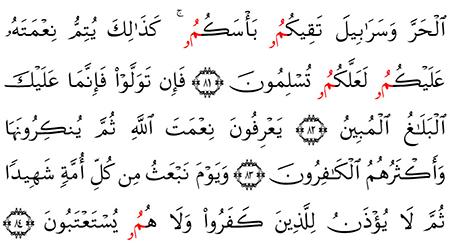 ٱلْحَرَّ وَسَرَٰبِيلَ تَقِيكُمُۥ بَأْسَكُمُۥ ۚ كَذَٰلِكَ يُتِمُّ نِعْمَتَهُۥ
عَلَيْكُمُۥ لَعَلَّكُمُۥ تُسْلِمُونَ ﴿٨١﴾ فَإِن تَوَلَّوْا۟ فَإِنَّمَا عَلَيْكَ
ٱلْبَلَٰغُ ٱلْمُبِينُ ﴿٨٢﴾ يَعْرِفُونَ نِعْمَتَ ٱللَّهِ ثُمَّ يُنكِرُونَهَا
وَأَكْثَرُهُمُ ٱلْكَٰفِرُونَ ﴿٨٣﴾ وَيَوْمَ نَبْعَثُ مِن كُلِّ أُمَّةٍ شَهِيدًا
ثُمَّ لَا يُؤْذَنُ لِلَّذِينَ كَفَرُوا۟ وَلَا هُمُۥ يُسْتَعْتَبُونَ ﴿٨٤﴾